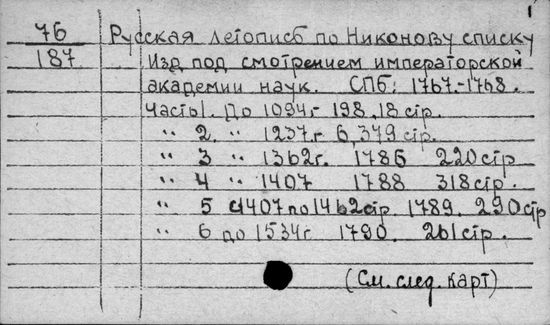 1
76 Русская летопись по Никонову списку
187 Изд под смотрением императорской
академии наук. СПБ: 1767.-1768.
Часть 1. До 1094г 198, 18 стр.
" 2. " 1237г 6, 379 стр.
" 3 " 1362г. 1786 220 стр
" 4 " 1407 1788 318 стр.
" 5 с 1407 по 1462 стр. 1789. 290 стр
" 6 до 1534г 1790. 261 стр.
(См. след. карт)